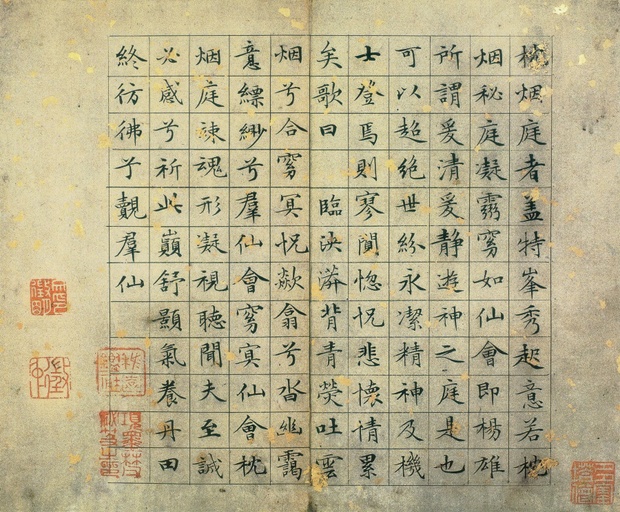 枕烟庭者盖特峯秀起意若枕
烟秘庭凝靈窅如仙會即楊雄
所謂爰清爰静遊神之庭是也
可以超絶世紛永潔精神及機
士登焉則寥闃惚怳悲懷情累
矣歌曰 臨泱漭背青熒吐雲
烟兮合窅冥怳欻翕兮沓幽靄
意縹緲兮羣仙會窅冥仙會枕
烟庭竦魂形凝視聽聞夫至誠
必感兮祈此巔舒顥氣養丹田
終彷彿予覿羣仙